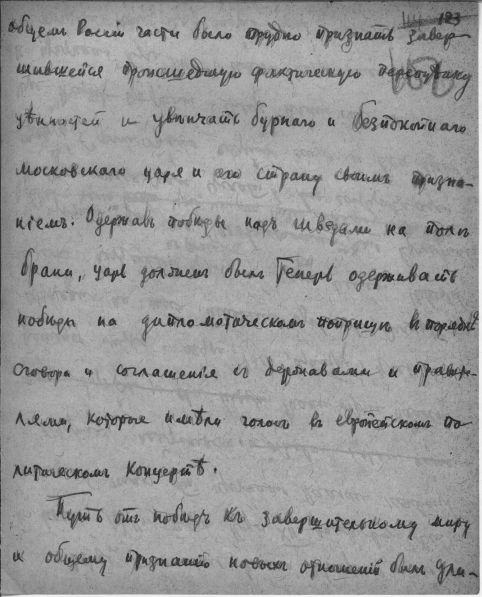 123
общем России части было трудно признать завер-
шившейся происшедшую фактическую переоценку
цѣнностей и увѣнчать бурнаго и безпокойнаго
московскаго царя и его страну своимъ призна-
ніемъ. Одержавъ победы надъ шведами на поле
брани, царь должен былъ теперь одерживать
победы на дипломатическом поприще в порядке
сговора и соглашенія съ державами и правите-
лями, которые имѣли голос в европейском по-
литическомъ концертѣ.
Путь отъ победъ къ завершительному миру
и общему признанію новыхъ отношеній былъ дли-